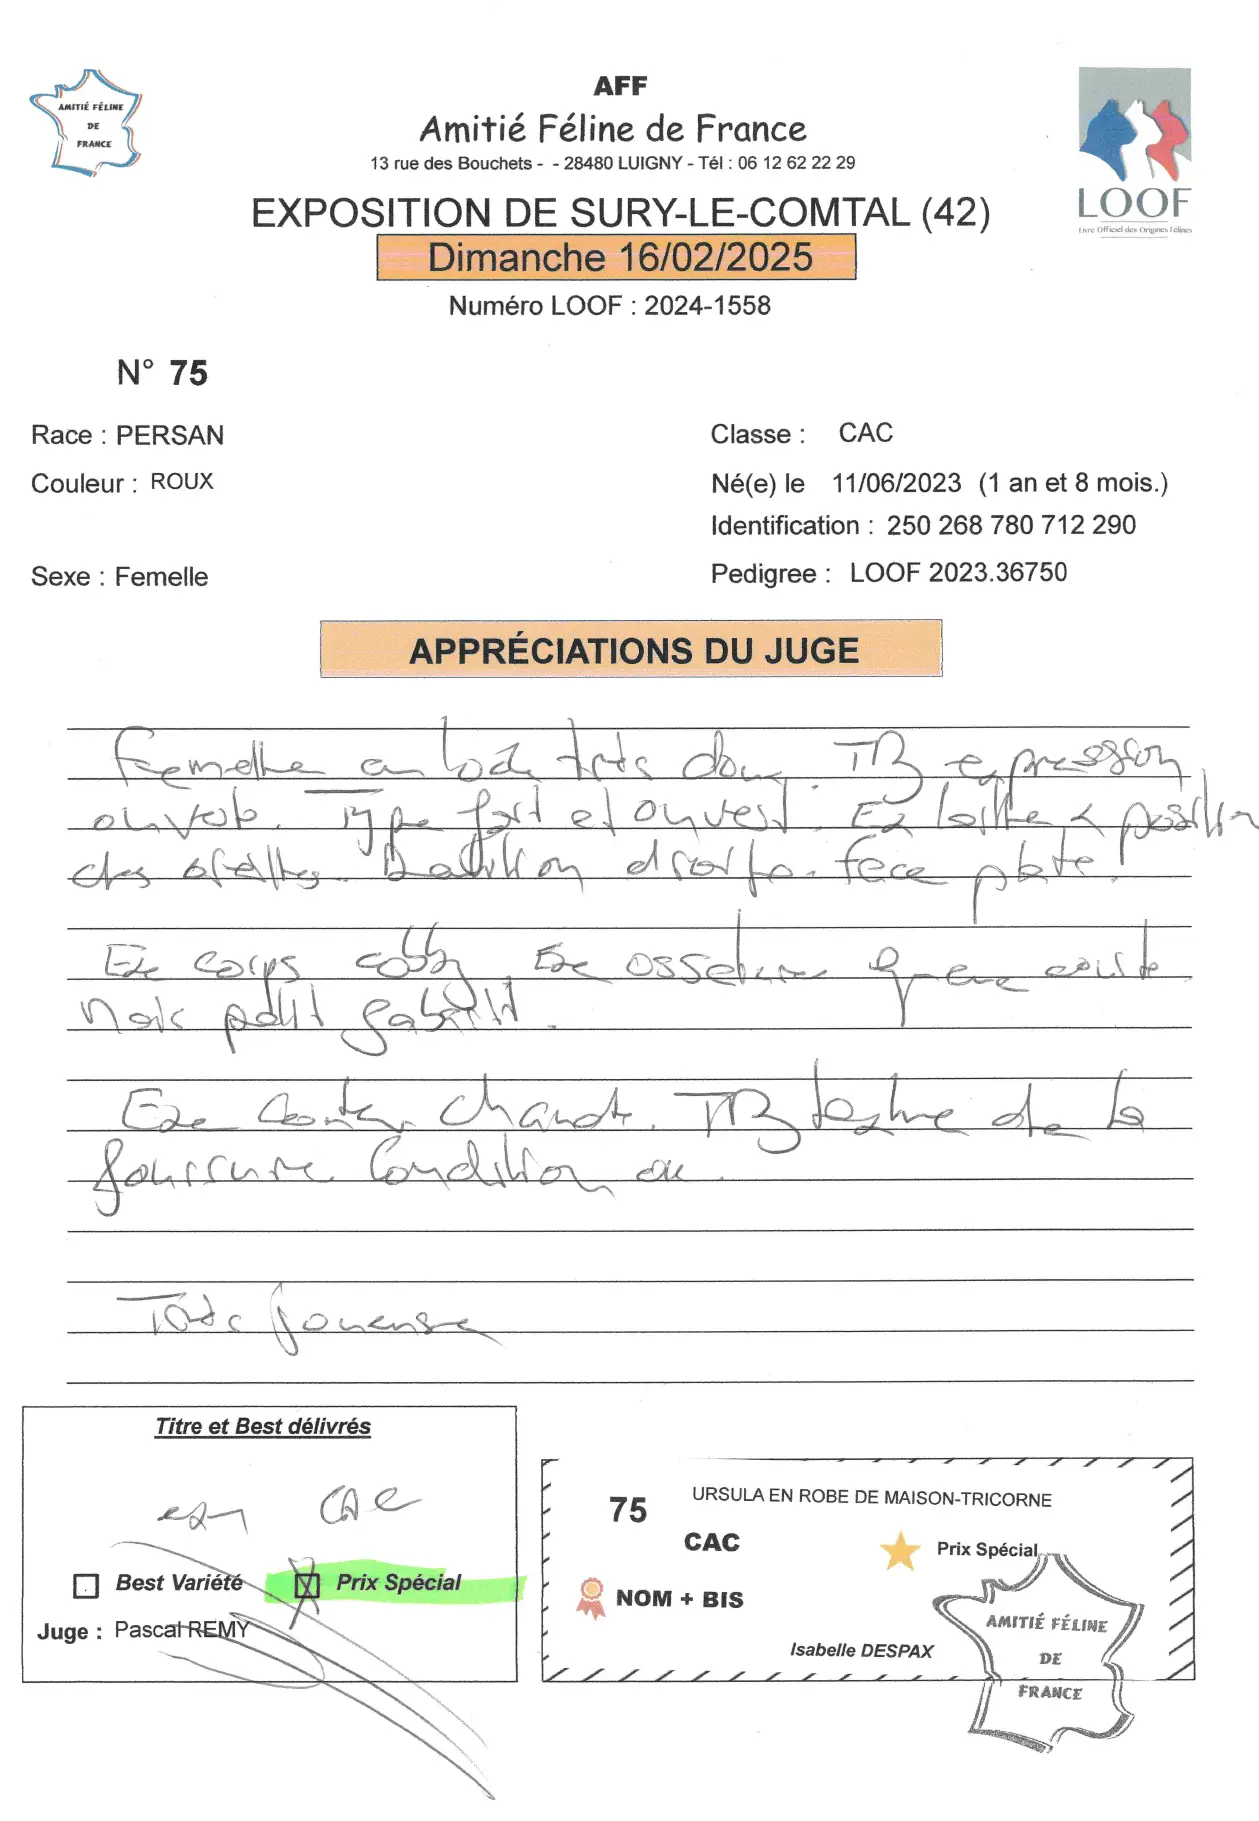 AMITIÉ FÉLINE
DE
FRANCE
AFF
Amitié Féline de France
13 rue des Bouchets - - 28480 LUIGNY - Tél : 06 12 62 22 29
EXPOSITION DE SURY-LE-COMTAL (42)
Dimanche 16/02/2025
Numéro LOOF : 2024-1558
LOOF
Livre Officiel des Origines Félines
N° 75
Race : PERSAN
Couleur : ROUX
Sexe : Femelle
Classe : CAC
Né(e) le 11/06/2023 (1 an et 8 mois.)
Identification : 250 268 780 712 290
Pedigree : LOOF 2023.36750
APPRÉCIATIONS DU JUGE
Femelle au look très doux. TB expression
ouverte. Type fort et ouvert. Ex taille & position
des oreilles. Dentition droite. face plate.
Exc corps cobby. Exc ossature queue courte
Mais petit gabarit.
Exc couleur chaude. TB texture de la
fourrure. Condition ok.
Très joueuse
Titre et Best délivrés
exc 1 CAC
Best Variété
Prix Spécial
Juge : Pascal REMY
75
URSULA EN ROBE DE MAISON-TRICORNE
CAC
Prix Spécial
NOM + BIS
Isabelle DESPAX
AMITIÉ FÉLINE
DE
FRANCE